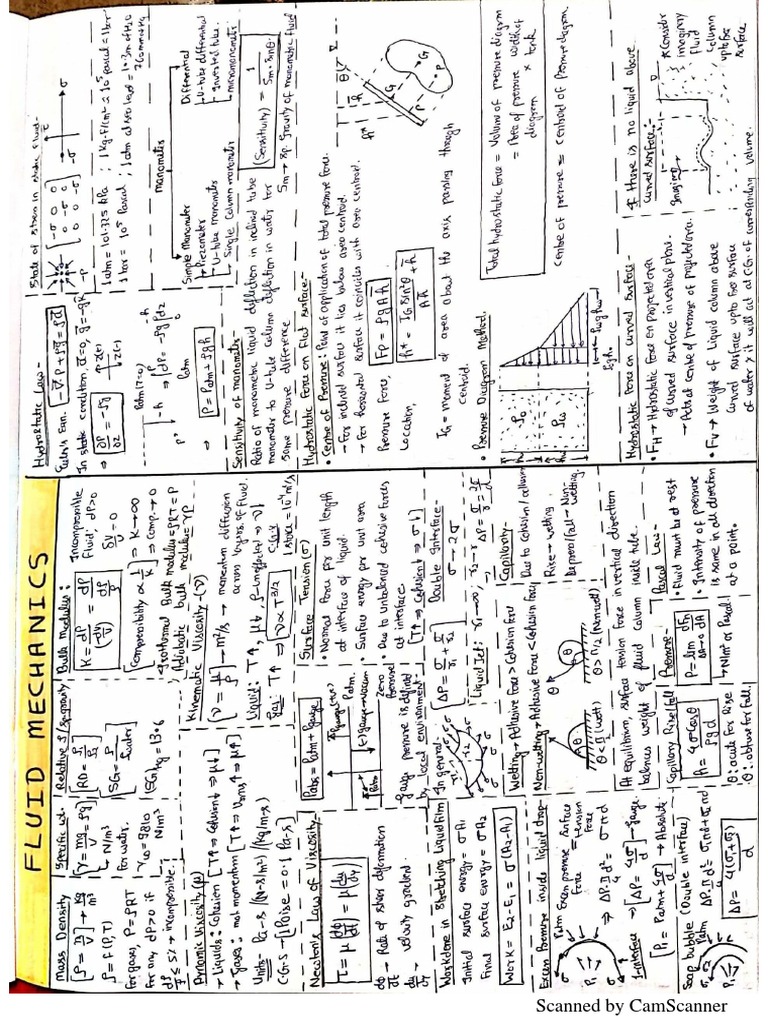 FLUID MECHANICS
Mass Density
[ρ = m/V] → kg/m³
ρ = f(P,T)
for gases, P = ρRT
for any dP>0 if
dρ/ρ ≤ 5% → incompressible
Specific wt.
[γ = mg/V = ρg]
↳ N/m³
for water,
γw = 9810 N/m³
Relative ρ / Sp. gravity
SG = ρ/ρwater
(SG)Hg = 13.6
Bulk Modulus:
K = dP/(-dV/V) = dP/(dρ/ρ)
Incompressible
fluid, dP>0
δV/V = 0
[Compressibility ∝ 1/K] ⇒ K→∞
⇒ Comp. → 0
Isothermal Bulk modulus = ρRT = P
Adiabatic bulk modulus = γP
Dynamic Viscosity (μ)
→ Liquids: Cohesion [T↑ ⇒ Cohesion↓ ⇒ μ↓]
→ Gases: mol. momentum [T↑ ⇒ Vrms↑ ⇒ μ↑]
Units – Pa-s / (N-s/m²) / (kg/m-s)
C.G.S → [1 Poise = 0.1 Pa-s]
Kinematic Viscosity – (ν)
[ν = μ/ρ] → m²/s → momentum diffusion
across layers of fluid.
Liquid: T↑, μ↓, ρ → ⇒ ν↓
Gas: T↑ ⇒ [ν ∝ T^3/2]
1 stoke = 10⁻⁴ m²/s
Newton's Law of Viscosity –
τ = μ(dθ/dt) = μ(du/dy)
dθ/dt → Rate of shear deformation
du/dy → Velocity gradient.
Pabs = Patm + Pgauge
Pgauge (+ve)
Patm.
(-) Pgauge = Vacuum
Pabs
Zero Pressure
Gauge pressure is defined
by local environment
Surface Tension (σ)
• Normal force per unit length
at interface of liquid.
• Surface energy per unit area
• Due to unbalanced cohesive forces
at interface
[T↑ ⇒ Cohesion↓ ⇒ σ↓]
Workdone in Stretching Liquid film
Initial surface energy = σA₁
Final surface energy = σA₂
Work = E₂-E₁ = σ(A₂-A₁)
In general-
[ΔP = σ/r₁ + σ/r₂]
Double Interface-
σ → 2σ
Liquid Jet: r₁→∞, r₂→r ΔP = σ/r = 2σ/d
Excess Pressure inside liquid drop-
Patm
Excess pressure force = Surface tension force
⇒ ΔP·π/4 d² = σπd
Interface
⇒ [ΔP = 4σ/d] → gauge
[Pi = Patm + 4σ/d] → Absolute
Wetting → Adhesive Force > Cohesion Force
Non-wetting → Adhesive Force < Cohesion Force
θ < π/2 (wet)
θ > π/2 (Non wet)
Capillarity-
Due to Cohesion/adhesion
Rise – wetting
Depress/fall – Non-wetting.
At equilibrium, surface tension force in vertical direction
balances weight of fluid column inside tube.
Soap bubble (Double interface)
Patm
ΔP·π/4 d² = σ₁πd + σ₂πd
ΔP = 4(σ₁+σ₂)/d
Capillary Rise/fall
h = 4σcosθ/ρgd
θ: acute for Rise
θ: obtuse for fall.
Pressure
P = lim ΔA→0 dFn/dA
↳ N/m² or Pascal
Pascal Law-
• Fluid must be at rest
• Intensity of pressure
is same in all direction
at a point.
Hydrostatic Law-
Euler's Eqn. [-∇P + ρg = ρa]
In static condition, a=0, g=-gk
⇒ [∂P/∂z = -ρg]
↑z(-)
↓z(+)
Patm (z=0)
⇒ ∫dP = -ρg∫dz
⇒ P = Patm + ρgh
State of stress in static fluid-
[-σ 0 0
0 -σ 0
0 0 -σ]
1 atm = 101.325 kPa ; 1 kg-f/m² ≃ 10⁵ pascal = 1 bar
1 bar = 10⁵ Pascal ; 1 atm at sea level = 10.3m of H₂O
760mm Hg
manometers
Simple Manometer
→ Piezometer
→ U-tube manometer
→ Single Column manometer
Differential
→ U-tube differential
→ Inverted tube
→ micromanometer
Sensitivity of manometer-
Ratio of manometric liquid deflection in inclined tube
manometer to U-tube column deflection in water for
same pressure difference
(Sensitivity) = 1/(Sm·sinθ)
Sm → Sp. gravity of manometric fluid
Hydrostatic Force on Flat surface-
• Centre of Pressure: Point of application of total pressure force.
– For inclined surface it lies below area centroid.
→ For horizontal surface it coincides with area centroid.
Pressure Force, Fp = ρgAh̄
Location, h* = IG sin²θ/Ah̄ + h̄
IG = moment of area about the axis passing through
centroid.
• Pressure Diagram Method.
Total hydrostatic force = Volume of pressure diagram
= Area of pressure diagram × width of tank
Centre of pressure = Centroid of Pressure diagram
Hydrostatic Force on curved surface-
• FH → Hydrostatic force on projected area
of curved surface in vertical plane.
– Acts at centre of pressure of projected area.
• FV → Weight of liquid column above
curved surface upto free surface
of water & it will act at CG. of corresponding volume.
If there is no liquid above
curved surface:-
Imaginary
*Consider
imaginary
fluid
Column
upto free
surface
Scanned by CamScanner